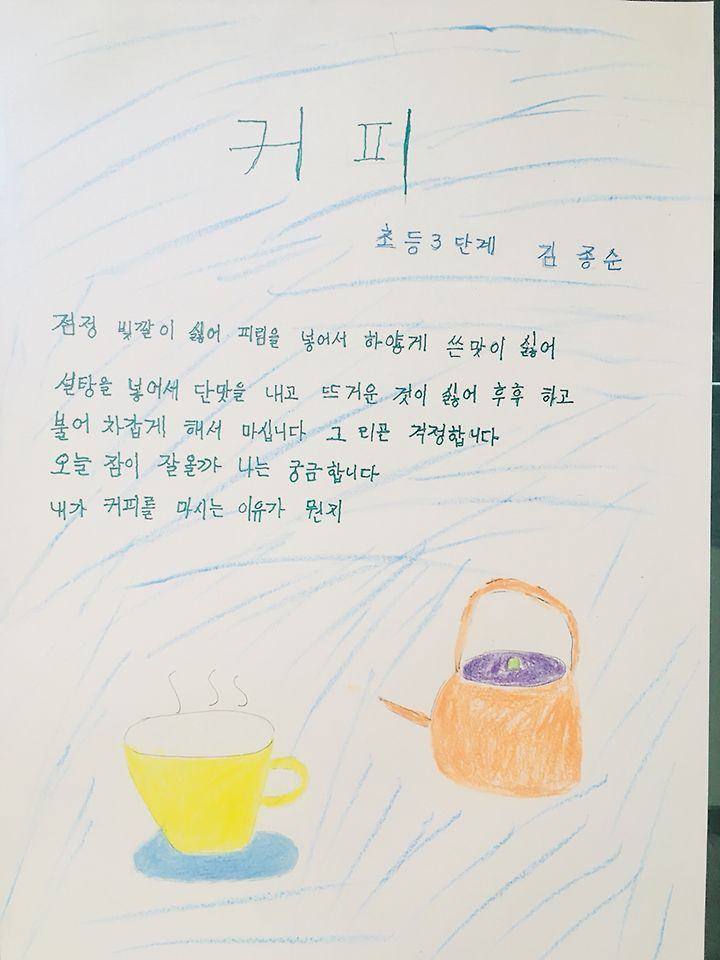 커피
초등3단계 김종순
검정 빛깔이 싫어 피림을 넣어서 하얗게 쓴맛이 싫어
설탕을 넣어서 단맛을 내고 뜨거운 것이 싫어 후후 하고
불어 차갑게 해서 마십니다 그리곤 걱정합니다
오늘 잠이 잘올까 나는 궁금합니다
내가 커피를 마시는 이유가 뭔지